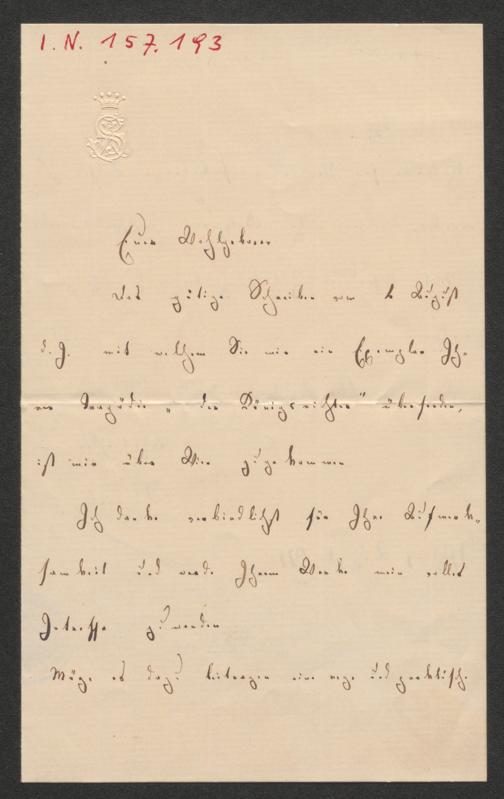 I. N. 157.193
Euer Wohlgeboren
Das gütige Schreiben vom 2 August
d. J. mit welchem Sie mir ein Exemplar Ih-
rer Tragödie „der Königsrichter" übersenden,
ist mir über Wien zugekommen
Ich danke verbindlichst für Ihre Aufmerk-
samkeit und werde Ihrem Werke mein volles
Interesse zuwenden
Möge es dazu beitragen eine rege und praktische